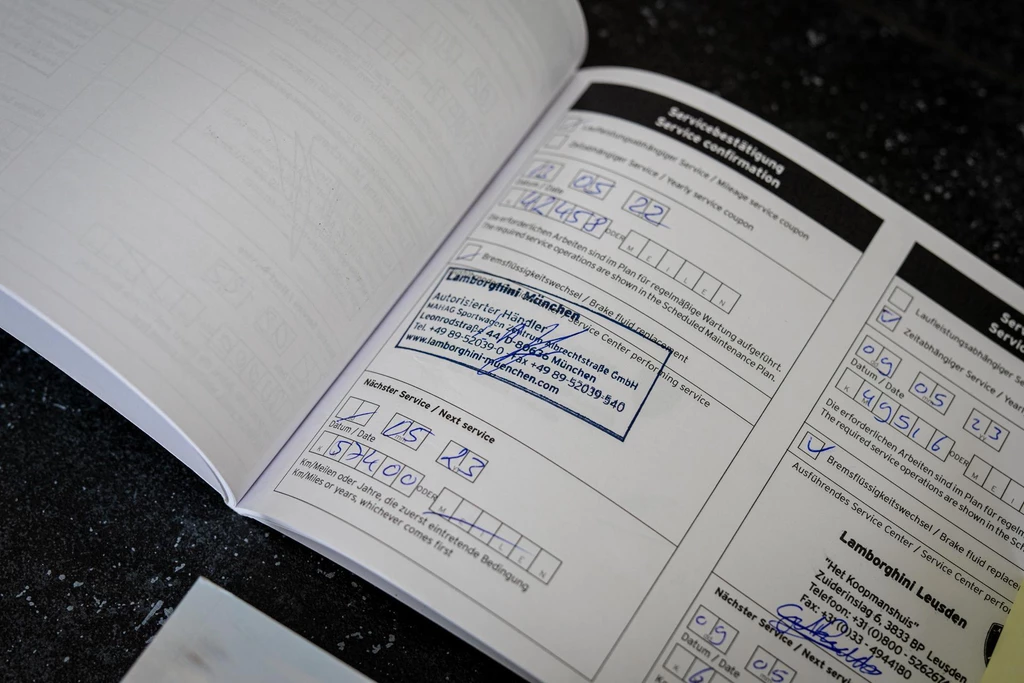 Servicebestätigung
Service confirmation
Laufleistungsabhängiger Service / Mileage service coupon
Zeitabhängiger Service / Yearly service coupon
12 05 22
Datum / Date
K 42458 ODER M E I L E N
Die erforderlichen Arbeiten sind im Plan für regelmäßige Wartung aufgeführt.
The required service operations are shown in the Scheduled Maintenance Plan.
Bremsflüssigkeitswechsel / Brake fluid replacement
Service Center performing service
Lamborghini München
Autorisierter Händler
MAHAG Sportwagen Zentrum Albrechtstraße GmbH
Leonrodstraße 44 D-80636 München
Tel. +49 89-52039-0 Fax +49 89-52039-540
www.lamborghini-muenchen.com
Nächster Service / Next service
05 23
Datum / Date
K 57400 ODER M E I L E N
Km/Meilen oder Jahre, die zuerst eintretende Bedingung
Km/Miles or years, whichever comes first
Laufleistungsabhängiger
Zeitabhängiger Service
09 05 23
Datum / Date
K 49516 ODER M E I
Die erforderlichen Arbeiten sind im Plan für
The required service operations are shown in the
Bremsflüssigkeitswechsel / Brake fluid
Ausführendes Service Center / Service Center
Lamborghini Leusden
"Het Koopmanshuis"
Zuiderinslag 6, 3833 BP Leusden
Telefoon: +31 (0)800 -
Fax: +31(0)33 - 4944180
Nächster Service / Next
09 05
Datum / Date
K 6